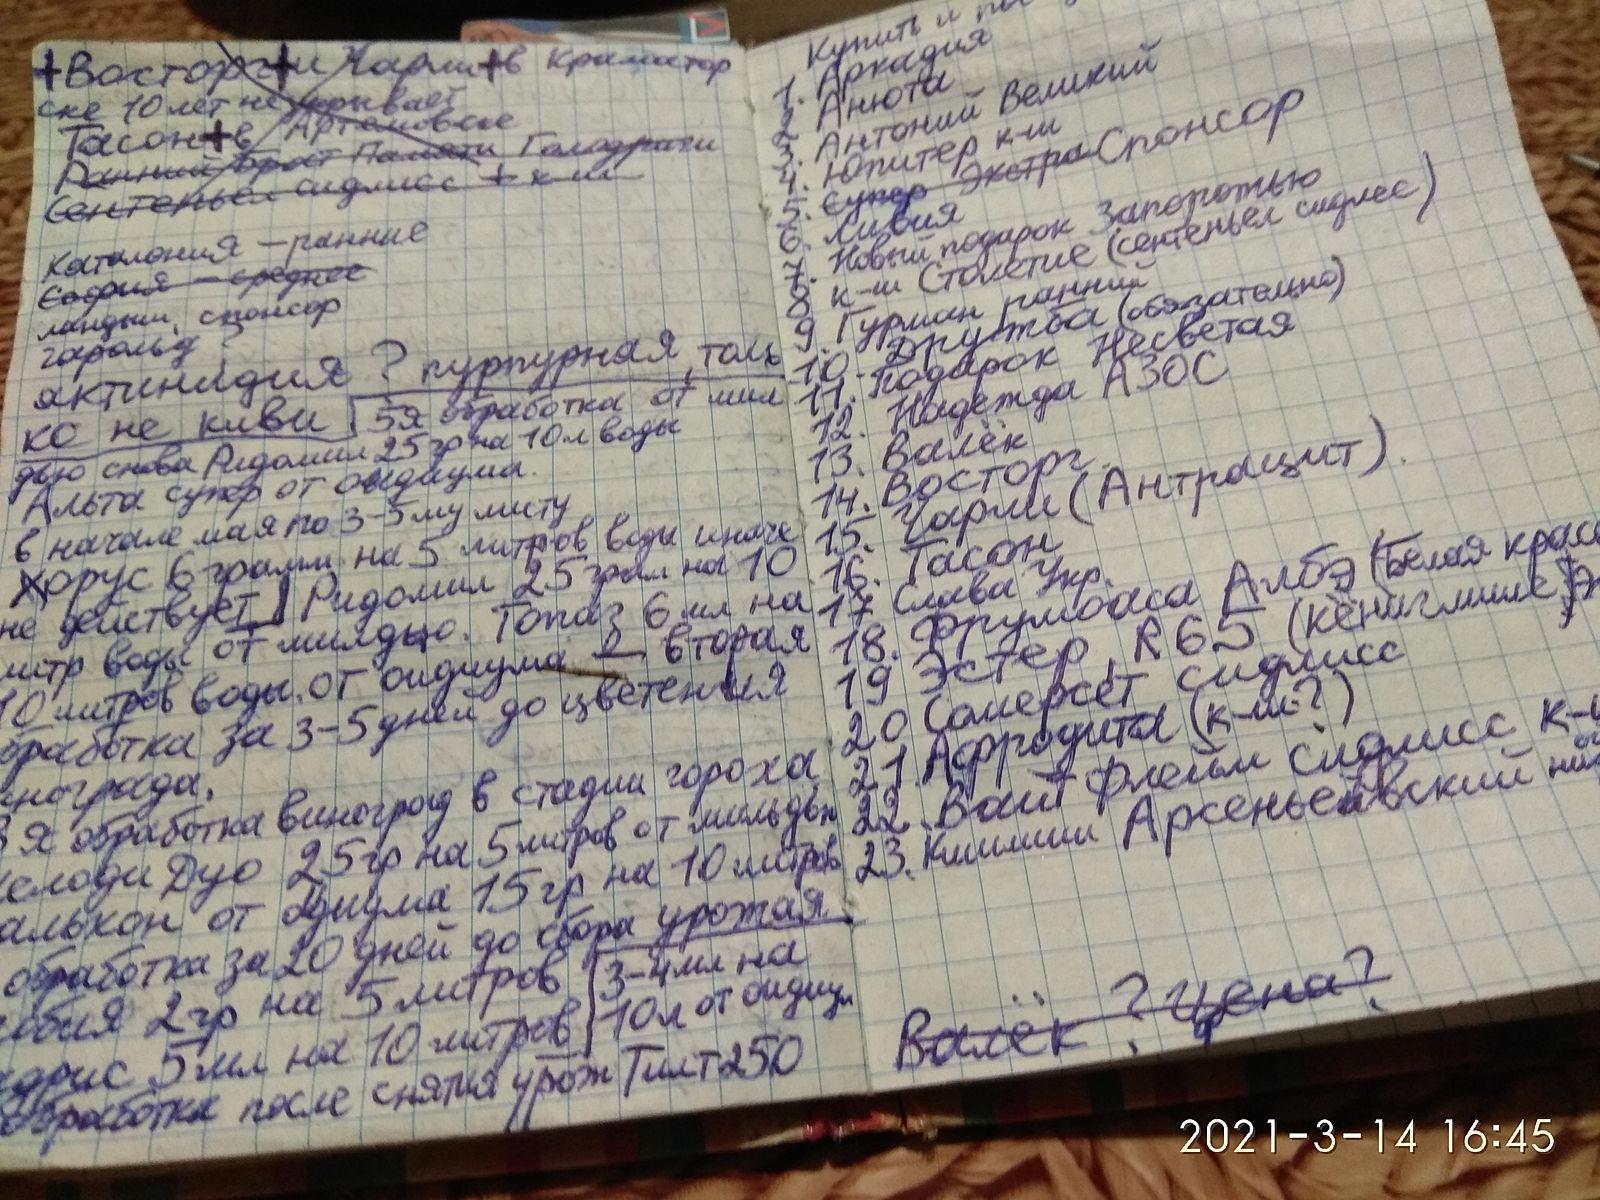 +Восторг+и Чарли+в Краматор
ске 10 лет не укрывает
Тасон+в Артемовске
Ранний Брат Памяти Голодриги
Сентеньел сидлисс + к-ш
Каталония - ранние
София - среднее
ландыш, спонсор
гарольд ?
актинидия ? пурпурная, толь
ко не киви 5я обработка от мил
дью снова Ридомил 25 гр на 10 л воды
Альта супер от оидиума.
в начале мая по 3-5 му листу
Хорус 6 грамм на 5 литров воды иначе
не действует Ридомил 25 грам на 10
литр воды от милдью. Топаз 6 мл на
10 литров воды. от оидиума 2 вторая
обработка за 3-5 дней до цветения
винограда.
3 я обработка виноград в стадии гороха
мелоди Дуо 25 гр на 5 литров от мильдью
Фалькон от оидиума 15 гр на 10 литров
обработка за 20 дней до сбора урожая
2 гр на 5 литров 3-4 мл на
5 мл на 10 литров 10 л от оидиум
Обработка после снятия урож Тилт 250
Купить и
1. Аркадия
2. Анюта
3. Антоний Великий
4. Юпитер к-ш
5. Супер Экстра Спонсор
6. Ливия
7. Новый подарок Запорожью
8 к-ш Столетие (сентеньел сидлес)
9. Гурман ранний
10. Дружба (обязательно)
11. Подарок Несветая
12. Надежда АЗОС
13. Валёк
14. Восторг
15. Чарли (Антрацит).
16. Тасон
17 Слава Укр.
18. Фрумоаса Албэ (Белая крас
19 Эстер, R65 (кёниглише Э
20 Сомерсет сидлисс
21. Афродита (к-ш?)
22. Ваит Флейм сидлисс к-ш
23. Кишмиш Арсеньевский
Валёк ? цена?
2021-3-14 16:45